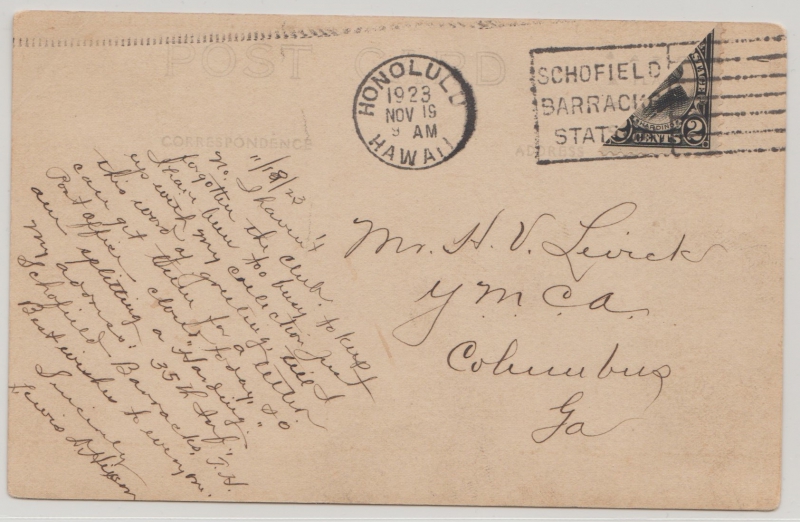 POST CARD
HONOLULU
1923
NOV 19
9 AM
HAWAII
SCHOFIELD
BARRACKS
STATION
HARDING
2 CENTS
CORRESPONDENCE
ADDRESS
11/18/23
No. I haven't
forgotten the club.
I have been too busy to keep
up with my collection. Just
this word of greeting, till I
can get time for a letter.
Post office closed today, so
am splitting a "Harding."
my address: 35th Inf.,
Schofield Barracks, T.H.
Best wishes to everyone.
Sincerely
Lewis A. Hixson
Mr. H. V. Levick
Y.M.C.A.
Columbus
Ga